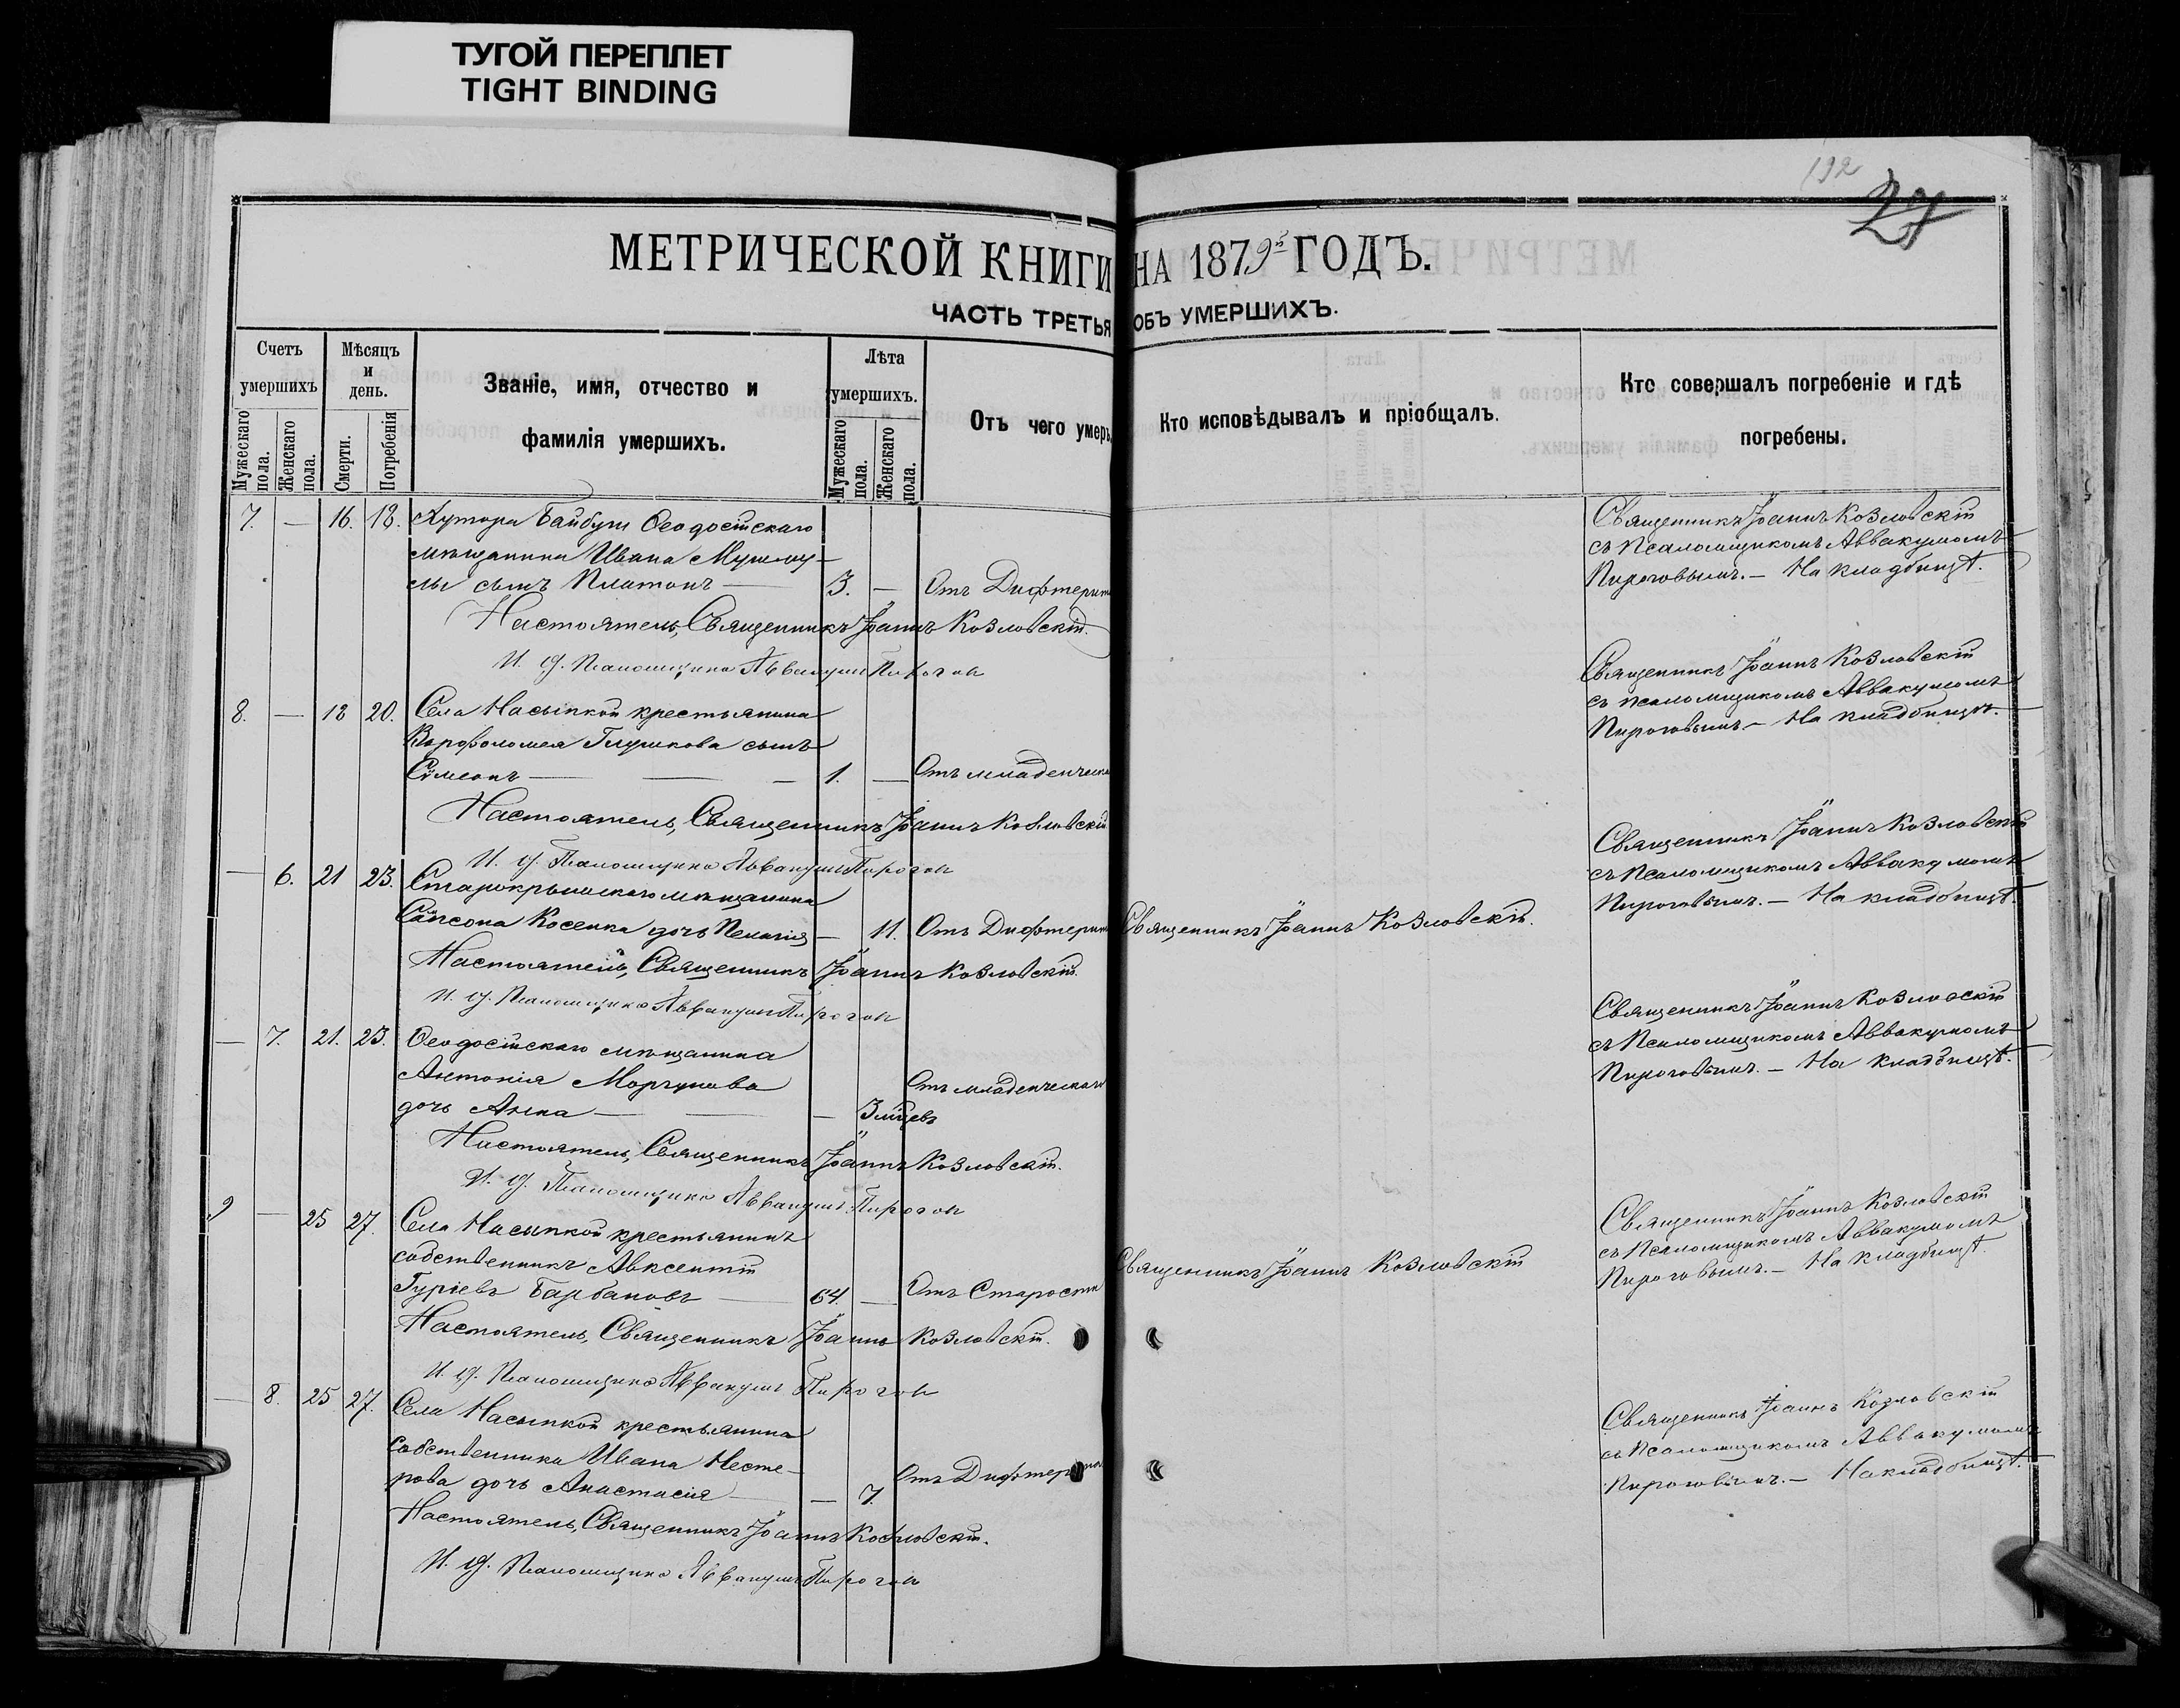 ТУГОЙ ПЕРЕПЛЕТ
TIGHT BINDING
192
27
МЕТРИЧЕСКОЙ КНИГИ НА 1879й ГОДЪ.
ЧАСТЬ ТРЕТЬЯ ОБЪ УМЕРШИХЪ.
Счетъ умершихъ
Мужескаго пола.
Женскаго пола.
Мѣсяцъ и день.
Смерти.
Погребенія
Званіе, имя, отчество и фамилія умершихъ.
Лѣта умершихъ.
Мужескаго пола.
Женскаго пола.
Отъ чего умеръ
Кто исповѣдывалъ и пріобщалъ.
Кто совершалъ погребеніе и гдѣ погребены.
7. — 16. 18. Хутора Байбуги Ѳеодосійскаго
мѣщанина Ивана
сынъ Платонъ — 3. — Отъ Дифтерита
Священникъ Іоаннъ Козловскій
съ Псаломщикомъ Аввакумомъ
Пироговымъ. — На кладбищѣ.
Настоятель, Священникъ Іоаннъ Козловскій.
И. д. Псаломщика Аввакумъ Пирогов
8. — 18 20. Села Насыпкой крестьянина
Варфоломея Глушкова сынъ
Сѵмеонъ — — — 1. — Отъ младенческа
Священникъ Іоаннъ Козловскій
съ псаломщикомъ Аввакумомъ
Пироговымъ. — На кладбищѣ.
Настоятель, Священникъ Іоаннъ Козловскій
И. д. Псаломщика Аввакумъ Пирогов
— 6. 21 23. Старокрымскаго мѣщанина
Сампсона Косенка дочь Пелагія — 11. Отъ Дифтерит
Священникъ Іоаннъ Козловскій.
Священникъ Іоаннъ Козловскій
съ Псаломщикомъ Аввакумомъ
Пироговымъ. — На кладбищѣ.
Настоятель, Священникъ Іоаннъ Козловскій.
И. д. Псаломщика Аввакумъ Пирогов
— 7. 21. 23. Ѳеодосійскаго мѣщанина
Антонія Моргунова
дочь Анна — — — 3 мѣцевъ Отъ младенческаго
Священникъ Іоаннъ Козловскій
съ Псаломщикомъ Аввакумомъ
Пироговымъ. — На кладбищѣ.
Настоятель, Священникъ Іоаннъ Козловскій.
И. д. Псаломщика Аввакумъ Пирогов
9 — 25 27. Села Насыпкой крестьянинъ
собственникъ Авксентій
Гуріевъ Барбановъ — 64. — Отъ Старости
Священникъ Іоаннъ Козловскій
Священникъ Іоаннъ Козловскій
съ Псаломщикомъ Аввакумомъ
Пироговымъ. — На кладбищѣ.
Настоятель, Священникъ Іоаннъ Козловскій.
И. д. Псаломщика Аввакумъ Пирогов
— 8. 25 27. Села Насыпкой крестьянина
собственника Ивана Несте-
рова дочь Анастасія — — 7. Отъ Дифтерита
Священникъ Іоаннъ Козловскій
съ Псаломщикомъ Аввакумомъ
Пироговымъ. — На кладбищѣ.
Настоятель, Священникъ Іоаннъ Козловскій.
И. д. Псаломщика Аввакумъ Пирогов